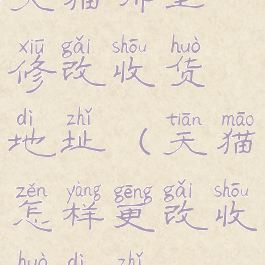 天猫哪里
xiū gǎi shōu huò
修改收货
dì zhǐ tiān māo
地址（天猫
zěn yàng gēng gǎi shōu
怎样更改收
huò dì zhǐ